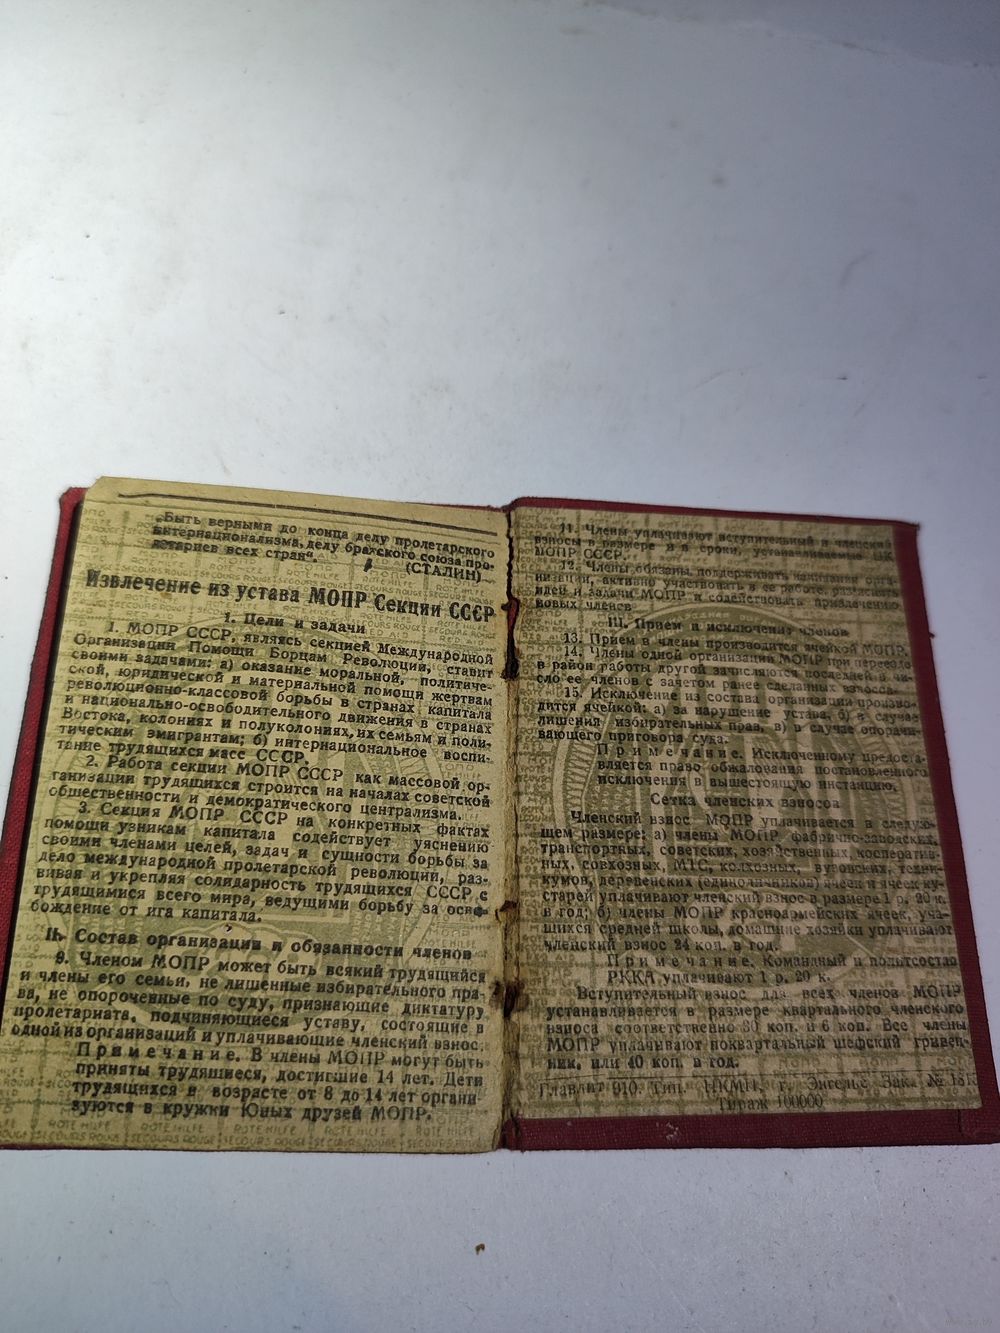 „Быть верными до конца делу пролетарского
интернационализма, делу братского союза про-
летариев всех стран“.
(СТАЛИН)
Извлечение из устава МОПР Секции СССР
1. Цели и задачи
1. МОПР СССР, являясь секцией Международной
Организации Помощи Борцам Революции, ставит
своими задачами: а) оказание моральной, политиче-
ской, юридической и материальной помощи жертвам
революционно-классовой борьбы в странах капитала
и национально-освободительного движения в странах
Востока, колониях и полуколониях, их семьям и поли-
тическим эмигрантам; б) интернациональное воспи-
тание трудящихся масс СССР.
2. Работа секции МОПР СССР как массовой ор-
ганизации трудящихся строится на началах советской
общественности и демократического централизма.
3. Секция МОПР СССР на конкретных фактах
помощи узникам капитала содействует уяснению
своими членами целей, задач и сущности борьбы за
дело международной пролетарской революции, раз-
вивая и укрепляя солидарность трудящихся СССР с
трудящимися всего мира, ведущими борьбу за осво-
бождение от ига капитала.
II. Состав организации и обязанности членов
9. Членом МОПР может быть всякий трудящийся
и члены его семьи, не лишенные избирательного пра-
ва, не опороченные по суду, признающие диктатуру
пролетариата, подчиняющиеся уставу, состоящие в
одной из организаций и уплачивающие членский взнос.
Примечание. В члены МОПР могут быть
приняты трудящиеся, достигшие 14 лет. Дети
трудящихся в возрасте от 8 до 14 лет органи-
зуются в кружки Юных друзей МОПР.
11. Члены уплачивают вступительный и членский
взносы в размере и в сроки, устанавливаемые ЦК
МОПР СССР.
12. Члены обязаны поддерживать кампании орга-
низации, активно участвовать в ее работе, раз'яснять
идеи и задачи МОПР и содействовать привлечению
новых членов
III. Прием и исключение членов
13. Прием в члены производится ячейкой МОПР.
14. Члены одной организации МОПР при переезде
в район работы другой зачисляются последней в чи-
сло ее членов с зачетом ранее сделанных взносов.
15. Исключение из состава организации произво-
дится ячейкой: а) за нарушение устава, б) в случае
лишения избирательных прав, в) в случае опорачи-
вающего приговора суда.
Примечание. Исключенному предоста-
вляется право обжалования постановленного
исключения в вышестоящую инстанцию.
Сетка членских взносов
Членский взнос МОПР уплачивается в следую-
щем размере: а) члены МОПР фабрично-заводских,
транспортных, советских, хозяйственных, кооператив-
ных, совхозных, МТС, колхозных, вузовских, техни-
кумов, деревенских (единоличников) ячеек и ячеек ку-
старей уплачивают членский взнос в размере 1 р. 20 к.
в год; б) члены МОПР красноармейских ячеек, уча-
щихся средней школы, домашние хозяйки уплачивают
членский взнос 24 коп. в год.
Примечание. Командный и политсостав
РККА уплачивают 1 р. 20 к.
Вступительный взнос для всех членов МОПР
устанавливается в размере квартального членского
взноса соответственно 30 коп. и 6 коп. Все члены
МОПР уплачивают поквартальный шефский гривен-
ник, или 40 коп. в год.
Главлит 910. Тип. НКМП, г. Энгельс Зак. №
Тираж 100000